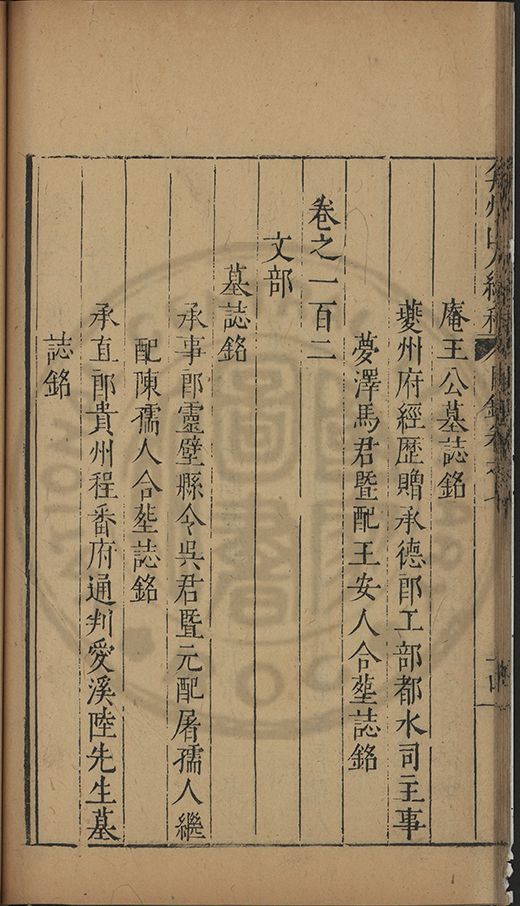 庵王公墓誌銘
夔州府經歷贈承德郎工部都水司主事
夢澤馬君暨配王安人合塟誌銘
卷之一百二
文部
墓誌銘
承事郎靈壁縣令吳君暨元配屠孺人繼
配陳孺人合塟誌銘
承直郎貴州程番府通判愛溪陸先生墓
誌銘